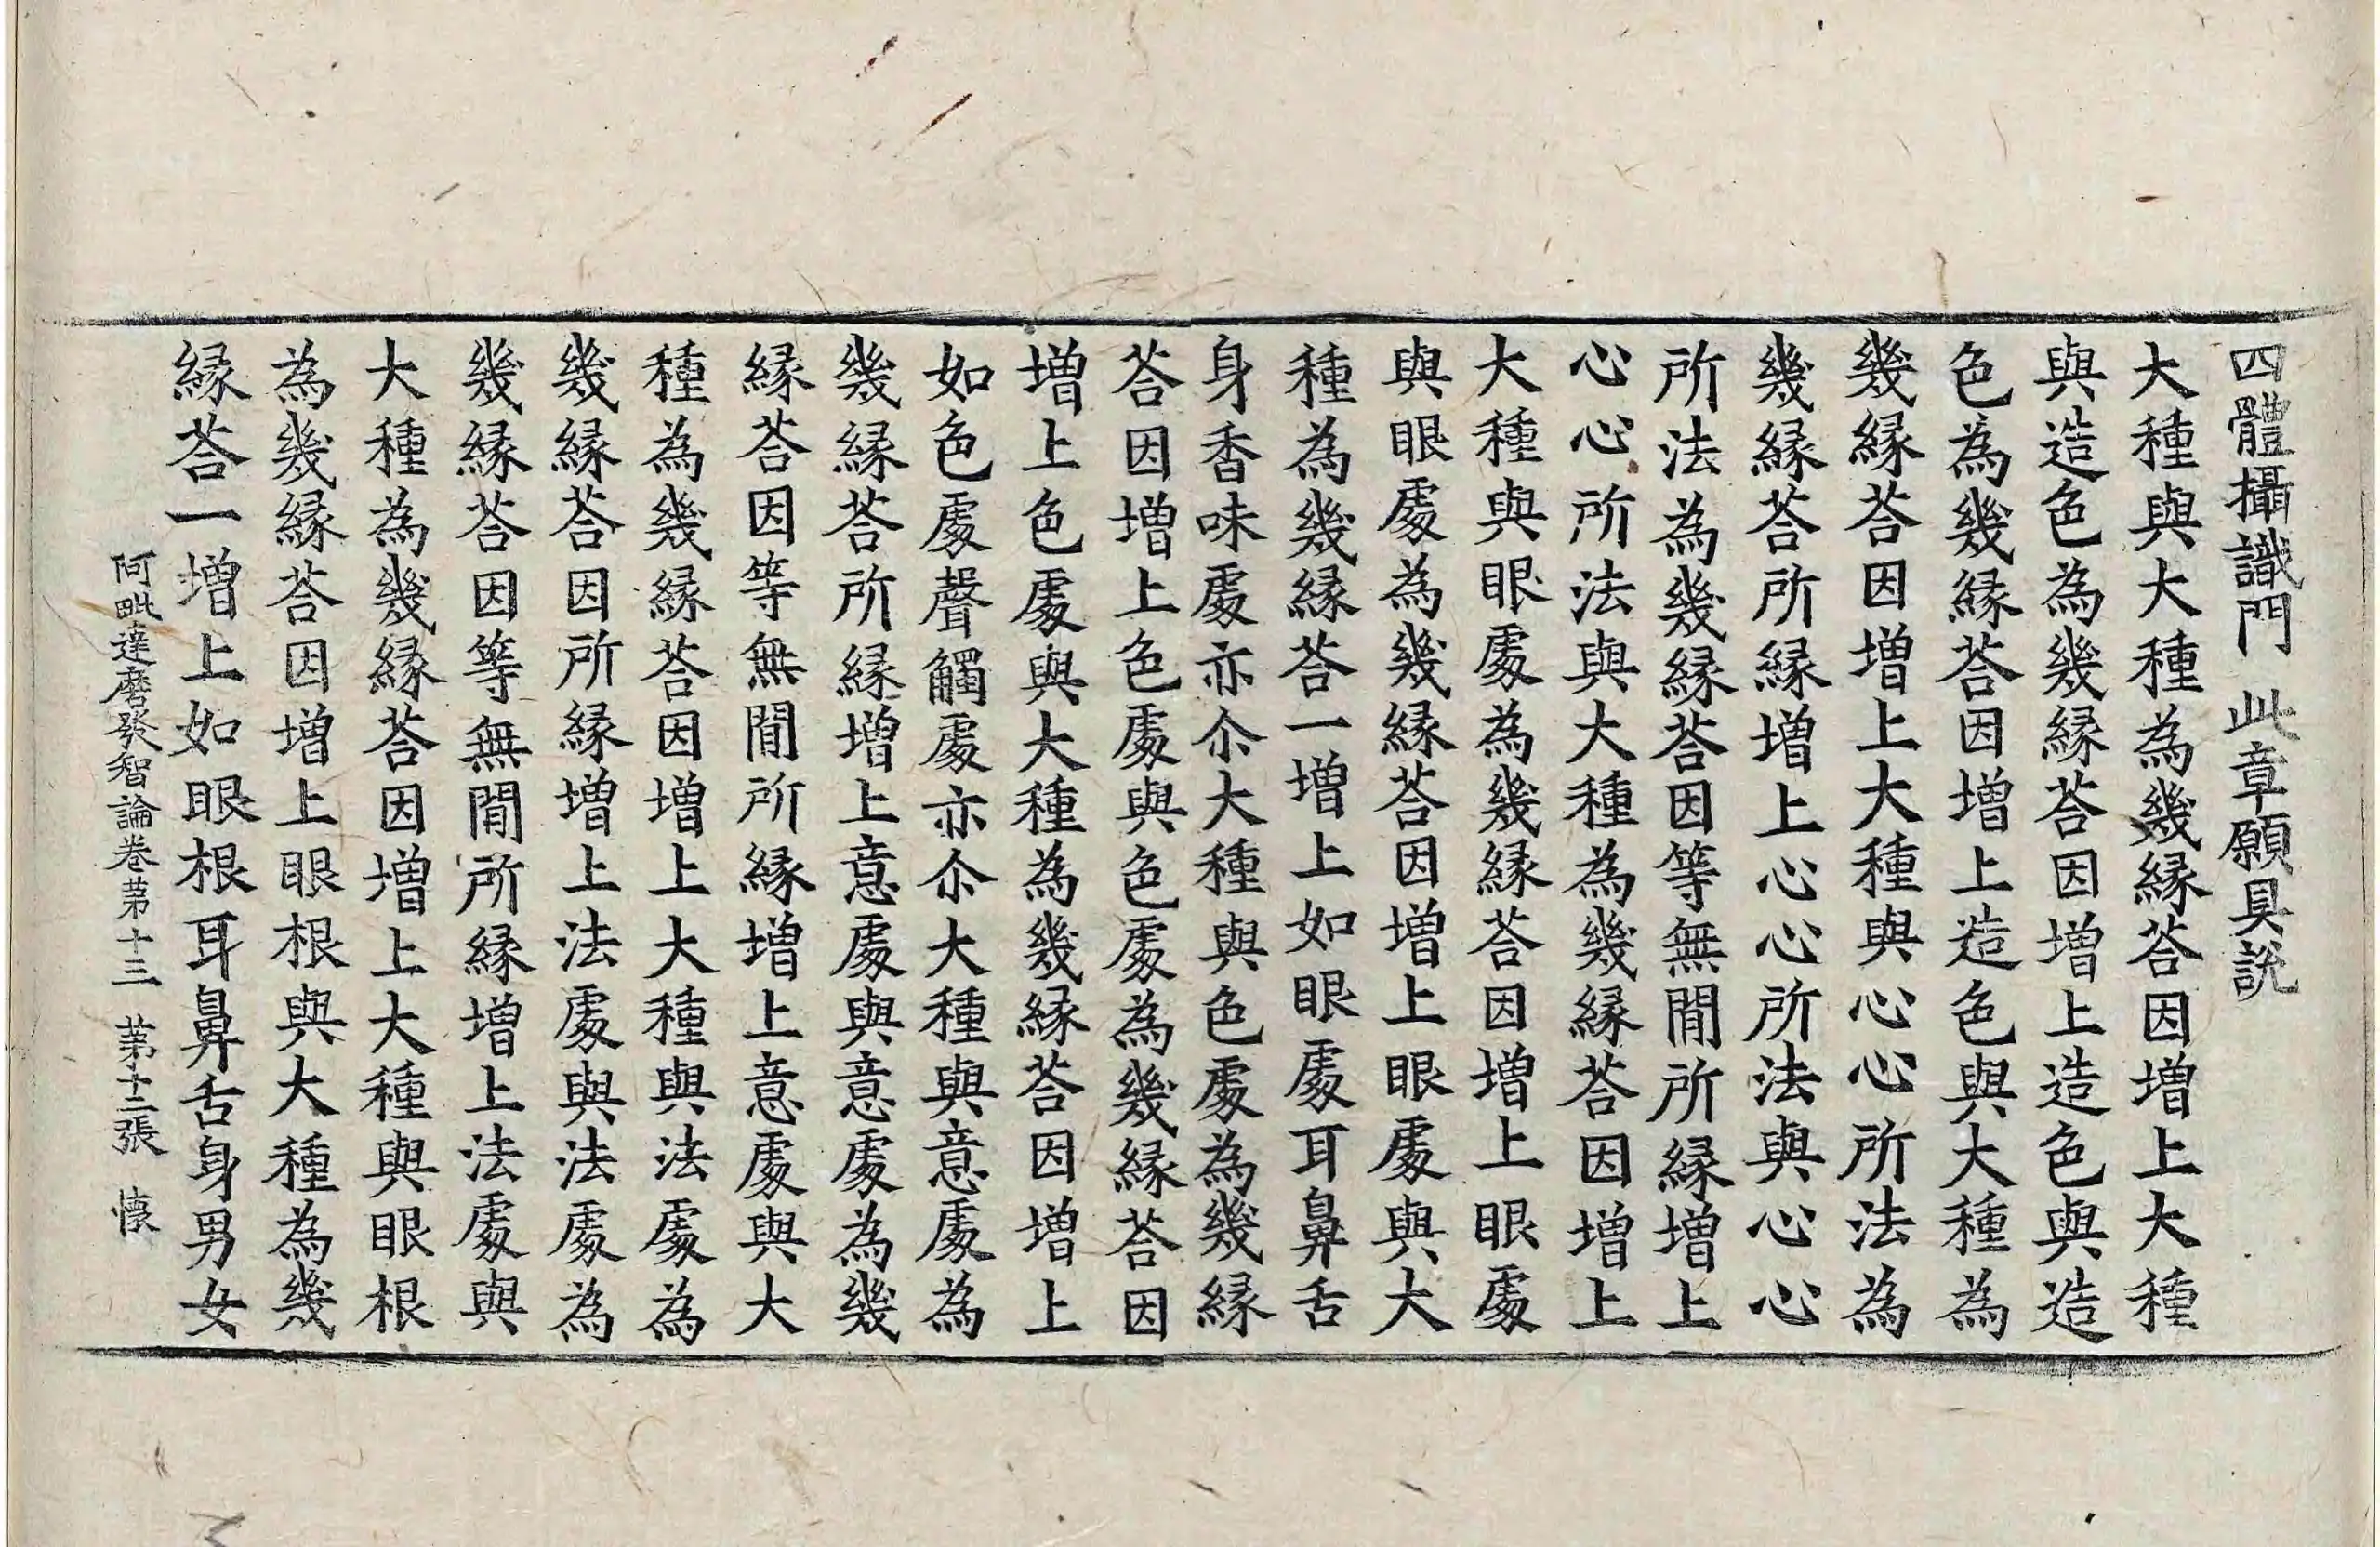 四體攝識門　此章願具說
大種與大種為幾縁荅因增上大種
與造色為幾縁荅因增上造色與造
色為幾縁荅因增上造色與大種為
幾縁荅因增上大種與心心所法為
幾縁荅所縁增上心心所法與心心
所法為幾縁荅因等無閒所縁增上
心心所法與大種為幾縁荅因增上
大種與眼處為幾縁荅因增上眼處
與眼處為幾縁荅因增上眼處與大
種為幾縁荅一增上如眼處耳鼻舌
身香味處亦尒大種與色處為幾縁
荅因增上色處與色處為幾縁荅因
增上色處與大種為幾縁荅因增上
如色處聲觸處亦尒大種與意處為
幾縁荅所縁增上意處與意處為幾
縁荅因等無閒所縁增上意處與大
種為幾縁荅因增上大種與法處為
幾縁荅因所縁增上法處與法處為
幾縁荅因等無閒所縁增上法處與
大種為幾縁荅因增上大種與眼根
為幾縁荅因增上眼根與大種為幾
縁荅一增上如眼根耳鼻舌身男女
阿毗達磨發智論卷苐十三　苐十二張　懷